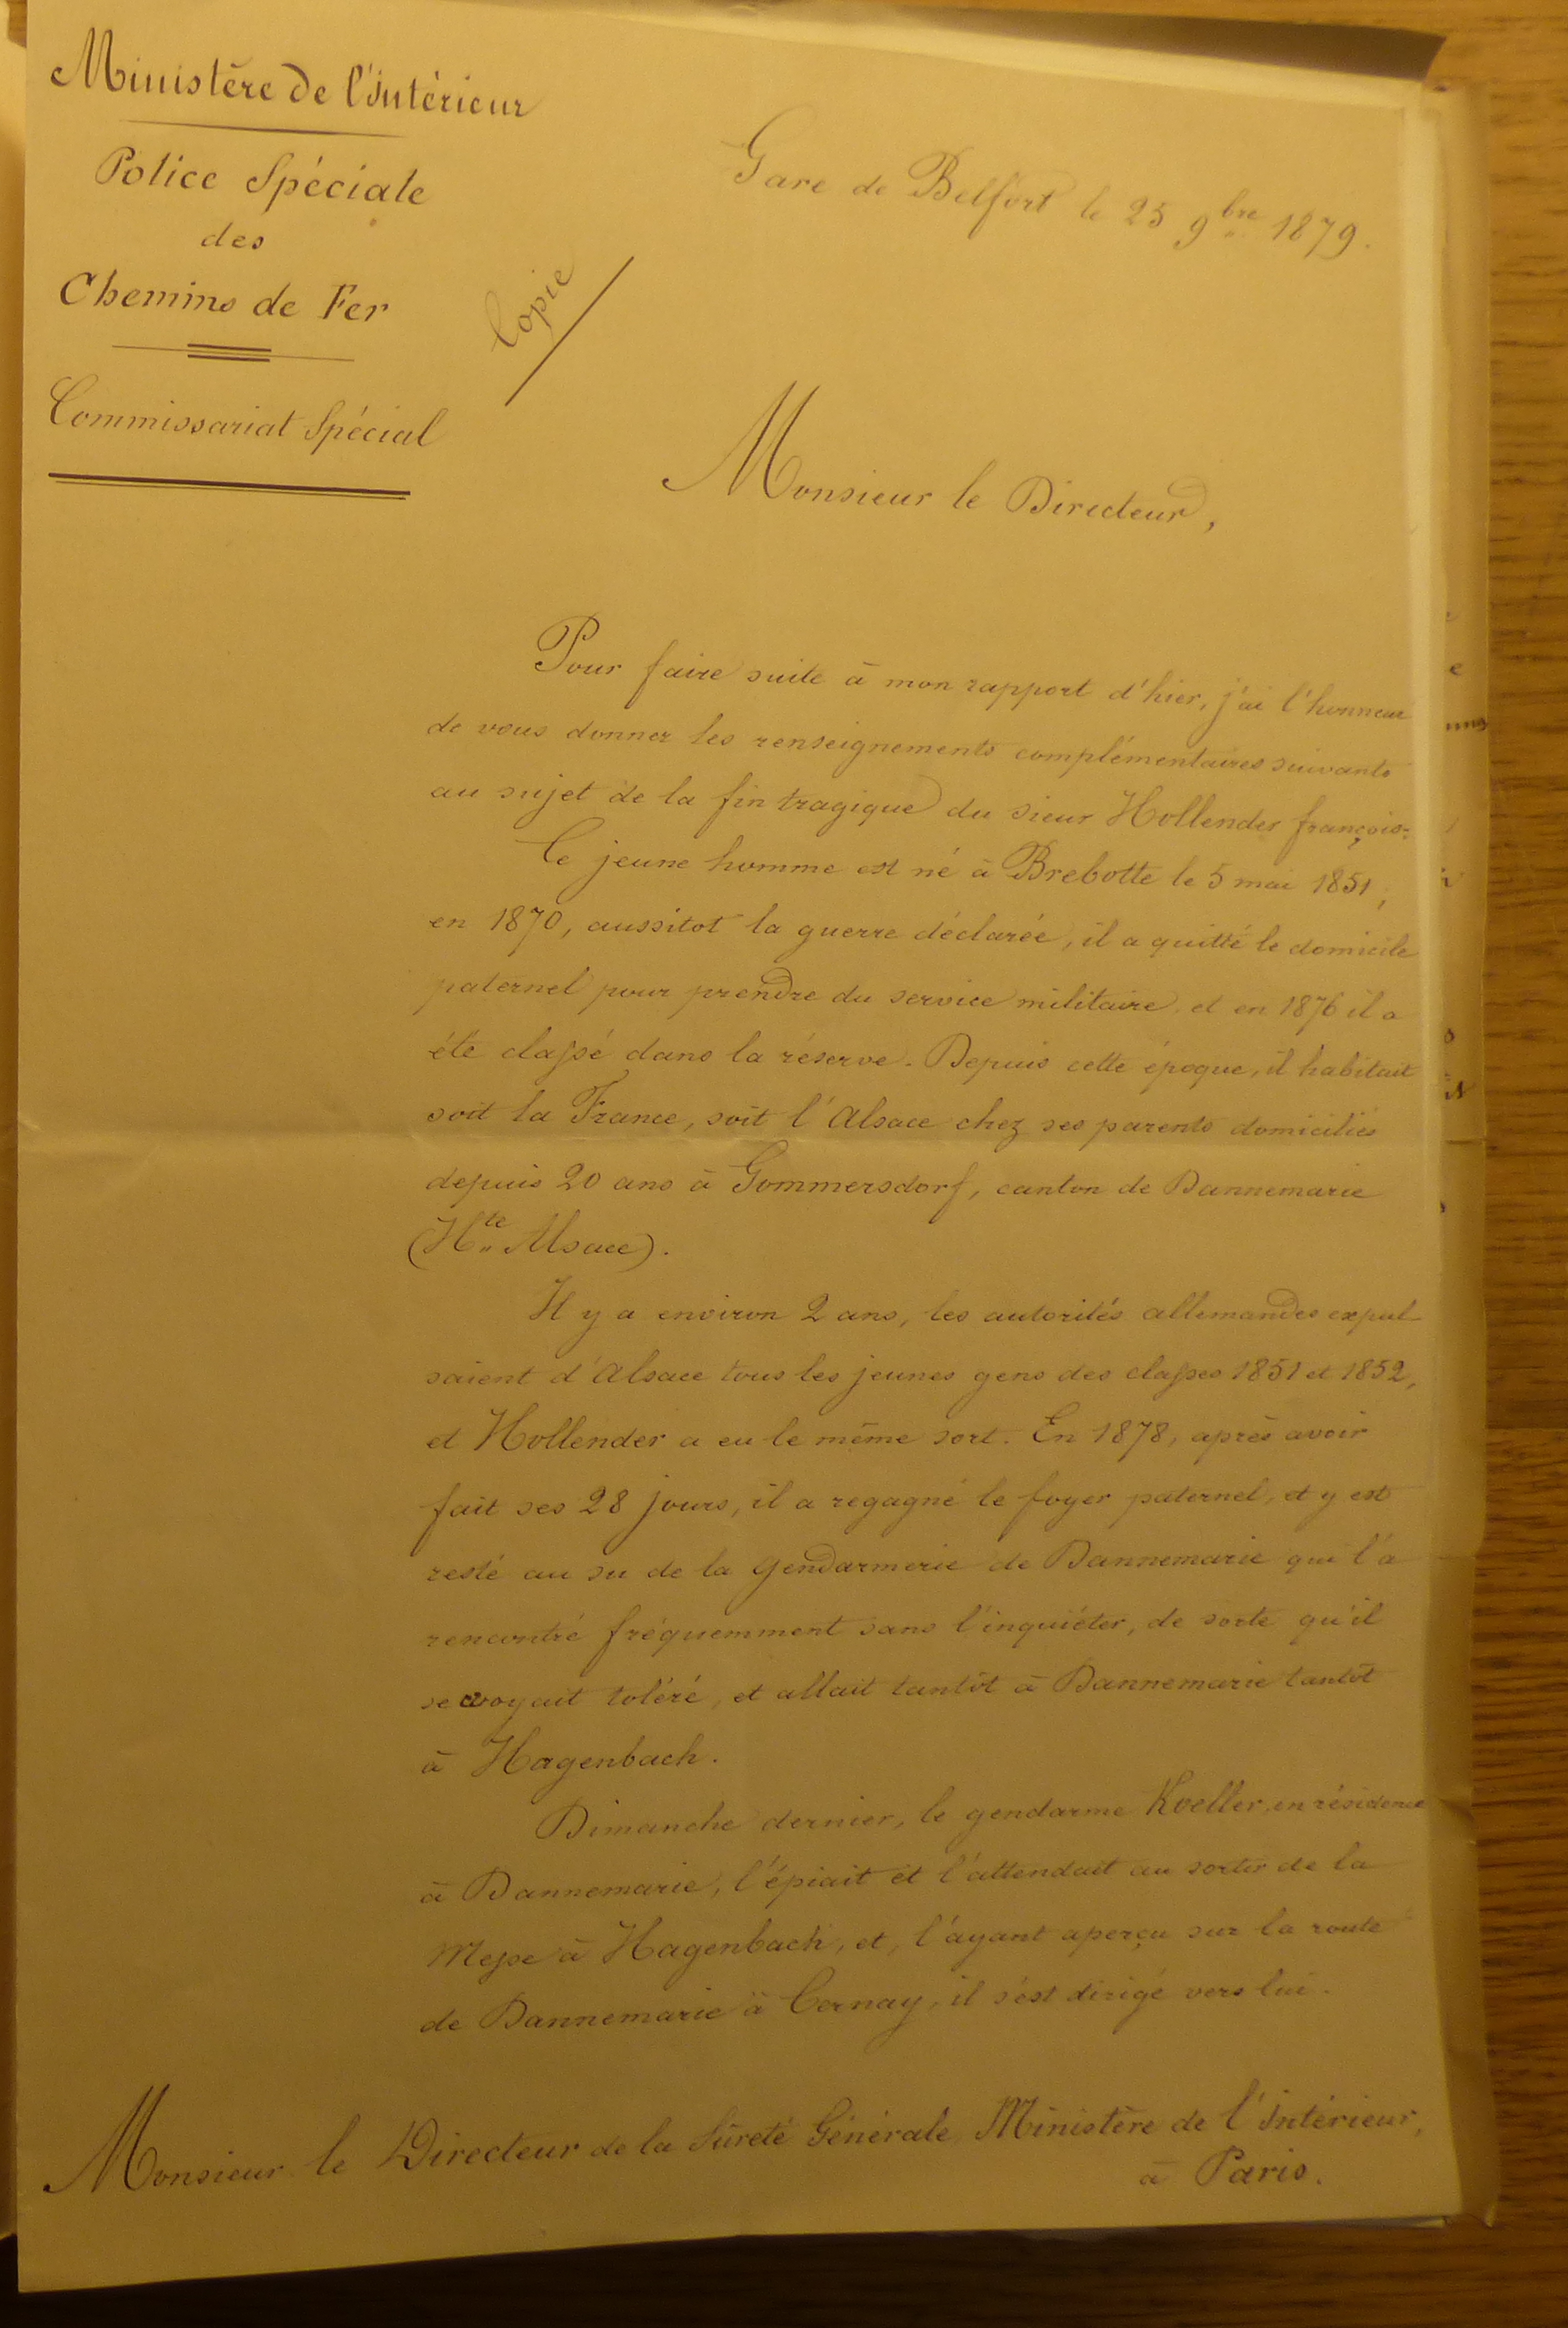 Ministère de l'Intérieur
Police Spéciale
des
Chemins de Fer
Commissariat Spécial
Copie
Gare de Belfort le 25 9bre 1879.
Monsieur le Directeur,
Pour faire suite à mon rapport d'hier, j'ai l'honneur
de vous donner les renseignements complémentaires suivants
au sujet de la fin tragique du sieur Hollender françois.
Ce jeune homme est né à Brebotte le 5 mai 1851,
en 1870, aussitot la guerre déclarée, il a quitté le domicile
paternel pour prendre du service militaire et en 1876 il a
été classé dans la réserve. Depuis cette époque, il habitait
soit la France, soit l'Alsace chez ses parents domiciliés
depuis 20 ans à Gommersdorf, canton de Dannemarie
(Hte Alsace).
Il y a environ 2 ans, les autorités allemandes expul-
saient d'Alsace tous les jeunes gens des classes 1851 et 1852,
et Hollender a eu le même sort. En 1878, après avoir
fait ses 28 jours, il a regagné le foyer paternel, et y est
resté au su de la gendarmerie de Dannemarie qui l'a
rencontré fréquemment sans l'inquiéter, de sorte qu'il
se croyait toléré, et allait tantôt à Dannemarie tantôt
à Hagenbach.
Dimanche dernier, le gendarme Koeller, en résidence
à Dannemarie, l'épiait et l'attendait au sortir de la
Messe à Hagenbach, et, l'ayant aperçu sur la route
de Dannemarie à Cernay, il s'est dirigé vers lui.
Monsieur le Directeur de la Sûreté Générale, Ministère de l'Intérieur,
à Paris.